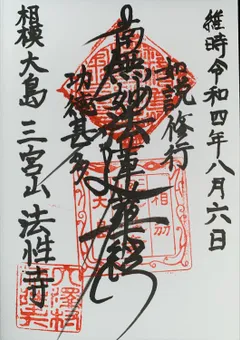 維時令和四年八月六日
如説修行
南無妙法蓮華経
功徳甚多
相模大島 三宮山 法性寺